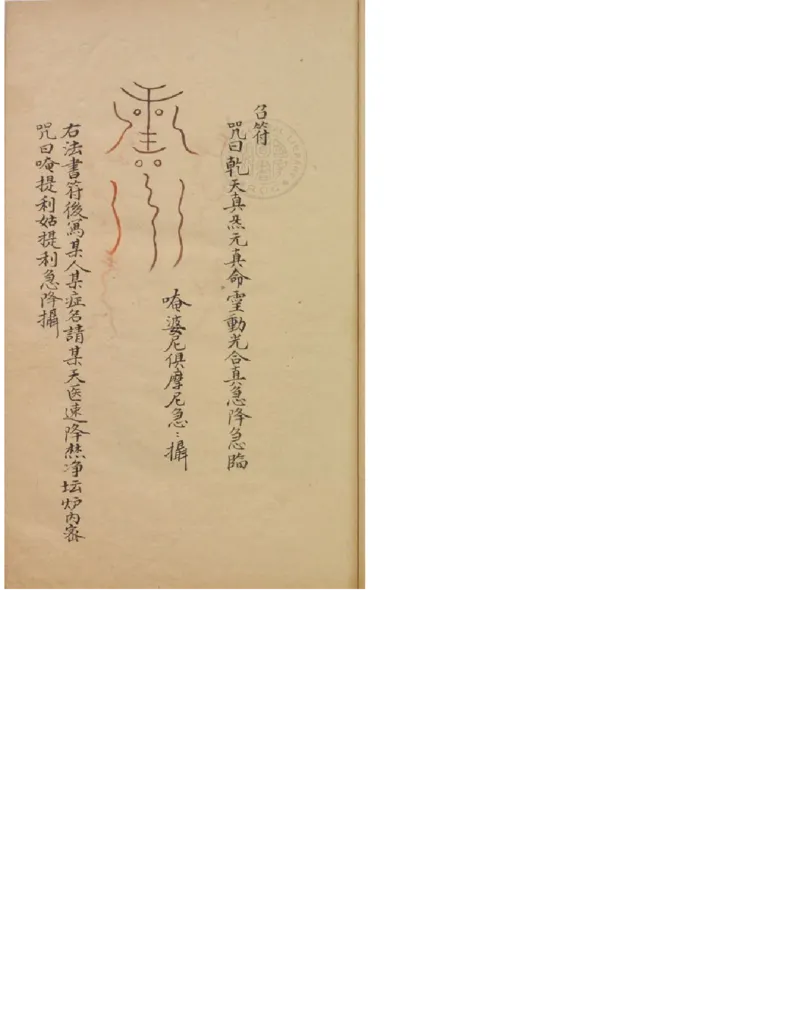 召符
咒曰乾天真炁元真命灵動光合真急降急臨
唵婆尼俱摩尼急〻攝
右法書符後寫某人某症名請某天医速降焚净坛炉内密
咒曰唵提利姑提利急降攝